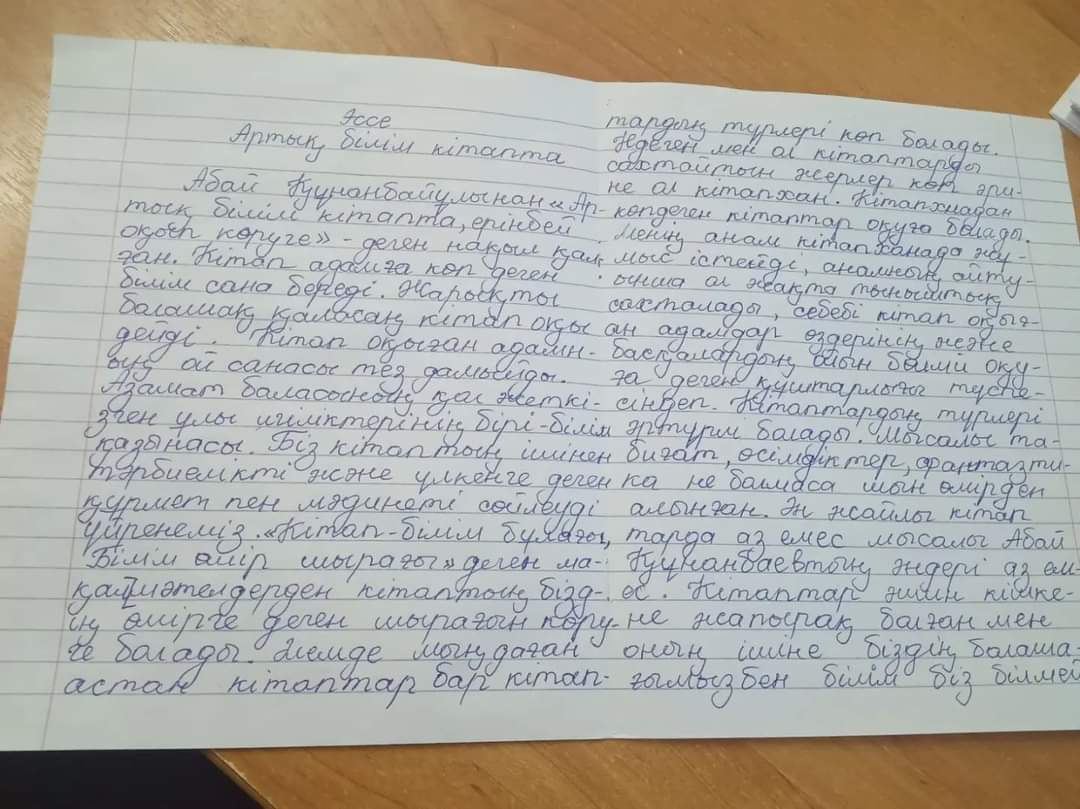 Эссе
Артық білім кітапта
Абай Құнанбайулынан «Ар-
тық білім кітапта, ерінбей
оқып көруге» - деген нақыл қал
ған. Кітап адамға көп деген
білім сана береді. Жарықты
болашақ қаласаң кітап оқы
дейді. Кітап оқыған адамн-
ың ой санасы тез дамыйды.
Азамат баласының қол жеткі-
зген ұлы игіліктерінің бірі-білім
қазынасы. Біз кітаптың ішінен
тәрбиелікті және үлкенге деген
құрмет пен мәдинеті сөйлеуді
үйренеміз. «Кітап-білім бұлағы,
Білім өмір шырағы» деген ма-
қал мәтелдерден кітаптың бізд-
ің өмірге деген шырағын көру-
ге болады. Әлемде мыңдаған
астан кітаптар бар кітап-
тардың түрлері көп болады.
Негеген мен ол кітаптарды
сахтайтын жерлер көп әри-
не ол кітапхан. Кітапхнадан
көпдеген кітаптар оқуға болады.
Менің анам кітапханада жұ-
мыс істейді, анамның айту-
ынша ол жақта тыныштық
сахталады, себебі кітап оқығ-
ан адамдар өздерінің және
басқалардың ойын бөлми оқу-
ға деген құштарлығы түспе-
сін деп. Кітаптардың түрлері
әртүрлі болады. Мысалы та-
биғат, өсімдіктер, фантазти-
ка не болмаса шын өмірден
алынған. Ән жайлы кітап
тарда аз емес мысалы Абай
Құнанбаевтың әндері аз ем-
ес. Кітаптар әшін кішке-
не жапырақ болған мен
оның ішіне біздің болаша-
ғымызбен білім біз білмей